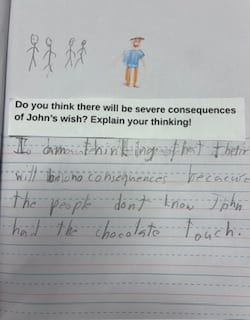 Do you think there will be severe consequences
of John's wish? Explain your thinking!
I am thinking that their
will be no consequences becacure
the people dont know John
had the chocolate touch.